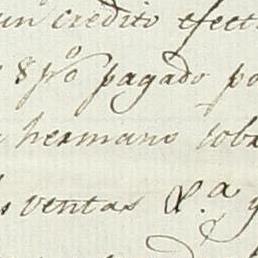 un credito efect
pagado po
hermano sobr
s ventas &.ª y